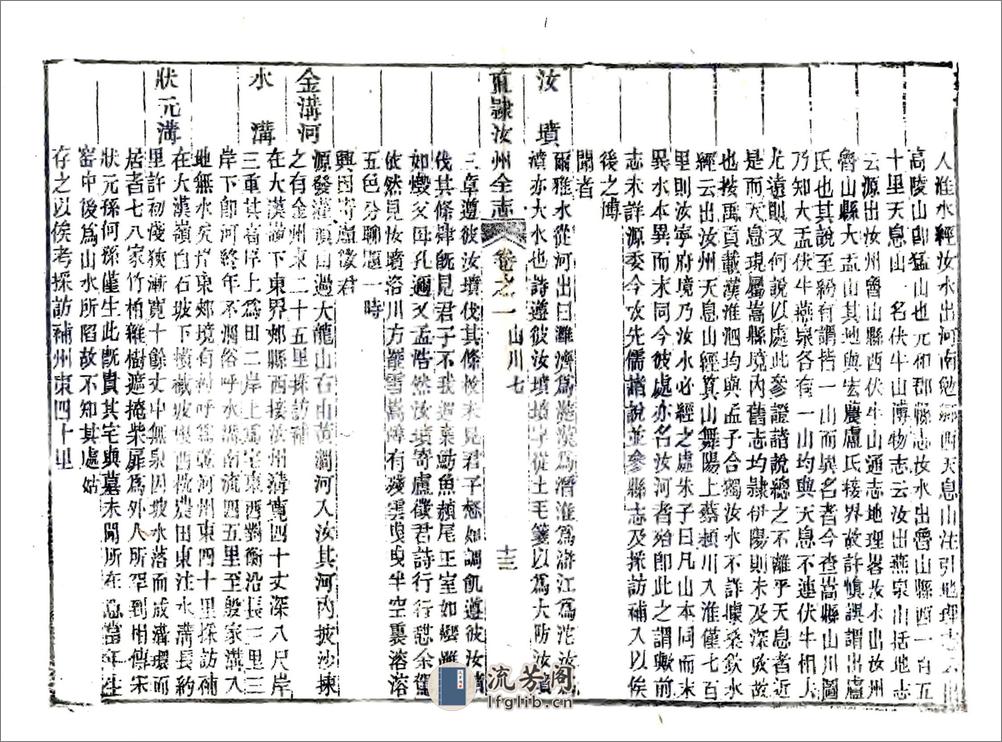 入淮水經汝水出河南勉鄉西天息山注引地理志
高陵山卽猛山也元和郡縣志汝水出魯山縣西一百五
十里天息山一名伏牛山博物志云汝出燕泉山括地志
云源出汝州魯山縣西伏牛山通志地理畧汝水出汝州
魯山縣大盂山其地與宏農盧氏接界故許慎誤謂出盧
氏也其說至紛有謂皆一山而異名者今查嵩縣山川圖
乃知大盂伏牛燕泉各有一山均與天息不連伏牛相去
尤遠則又何說以處此參證諸說總之不離乎天息者近
是而天息現屬嵩縣境內舊志均隸伊陽則未及深攷故
也按禹貢載漢淮泗均與孟子合獨汝水不詳壞桑欽水
經云出汝州天息山經其山舞陽上蔡潁川入淮僅七百
里則汝寧府境乃汝水必經之處朱子曰凡山本同而末
異水本異而末同今彼處亦名汝河者殆卽此之謂歟前
志未詳源委今攷先儒諸說並參縣志及採訪補入以俟
後之博
聞者
汝墳
爾雅水從河出曰灉濟爲濋漢爲潛淮爲滸江爲沱汝
濆亦大水也詩遵彼汝墳墳字從土毛箋以爲大防汝濆
直隸汝州全志 卷之一 山川七 十三
三章遵彼汝墳伐其條枚未見君子惄如調飢遵彼汝
伐其條肄旣見君子不我遐棄魴魚赬尾王室如燬雖則
如燬父母孔邇又孟浩然汝墳寄盧徵君詩行行愆余駕
依然見汝墳洛川方罷雪嵩嶂有殘雲曳曳半空裏溶溶
五色分聊題一時
興因寄盧徵君
金溝河
源發灌頂山過大龍山石山黃澗河入汝其河內披沙揀
之有金州東二十五里採訪補
水溝
在大漢嶺下東界郟縣西接汝州溝寬四十丈深八尺岸
三重其者岸上爲田二岸上爲宅東西對衡沿長三里三
岸下卽河終年不涸俗呼水溝南流四五里至殷家溝入
地無水矣岸東郟境有河呼爲乾河州東四十里採訪補
狀元溝
在大漢嶺自石坡下
西攸農田東注水溝長約
里許初淺狹漸寬十餘丈中無泉因坡水落而成溝環而
居者七八家竹柏雜樹遮掩柴扉爲外人所罕到相傳宋
狀元孫何孫僅生此旣貴其宅與墓未聞所在或當年生
窰中後爲山水所陷故不知其處姑
存之以俟考採訪補州東四十里
流芳阁
lfglib.cn